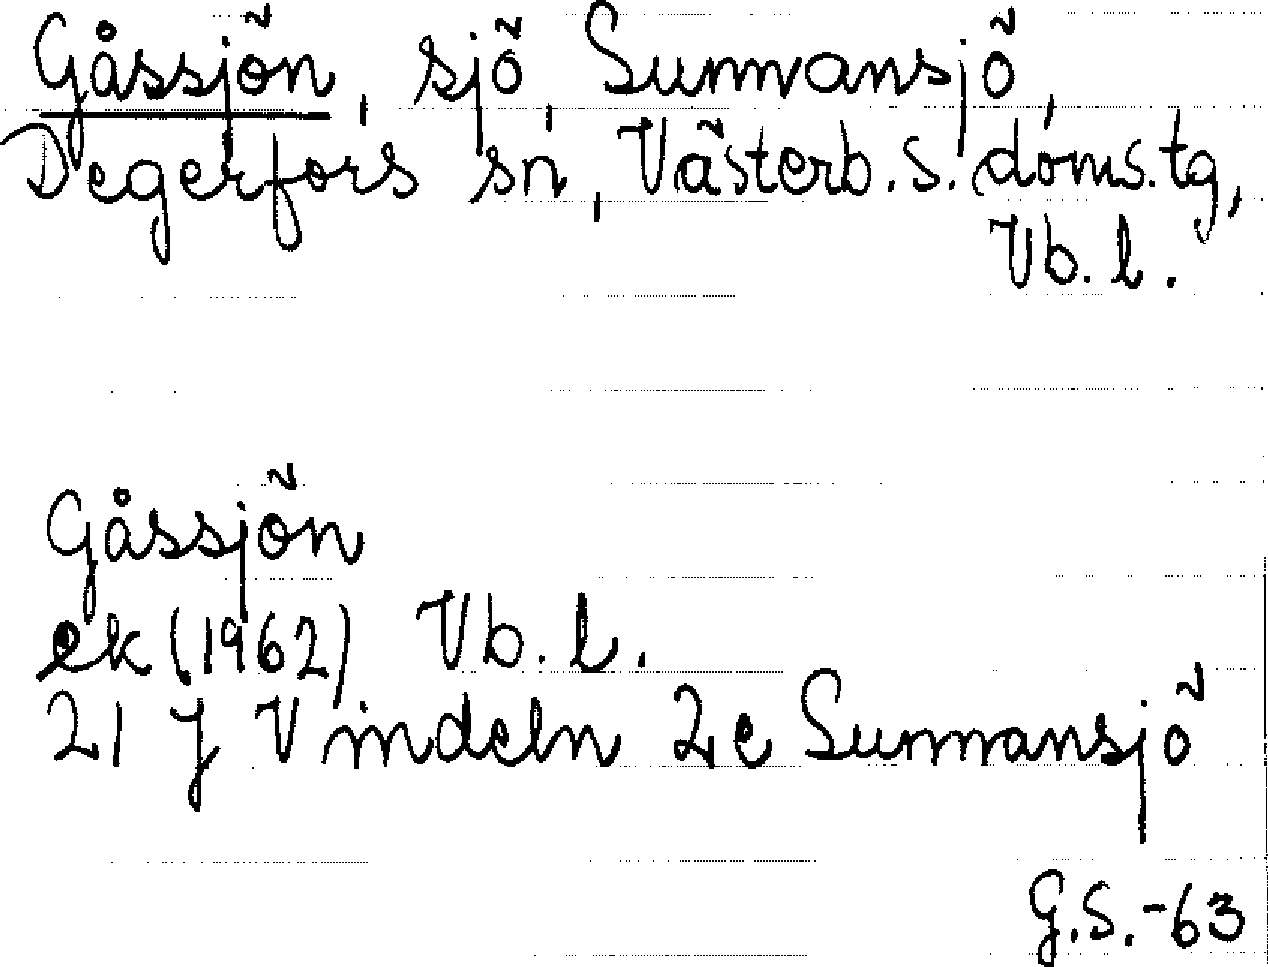 Gåssjön, sjö, Sunnansjö,
Degerfors sn, Västerb. s. doms. tg,
Vb. l.
Gåssjön
ek (1962) Vb. l.
21 J Vindeln 2c Sunnansjö
G.S.-63